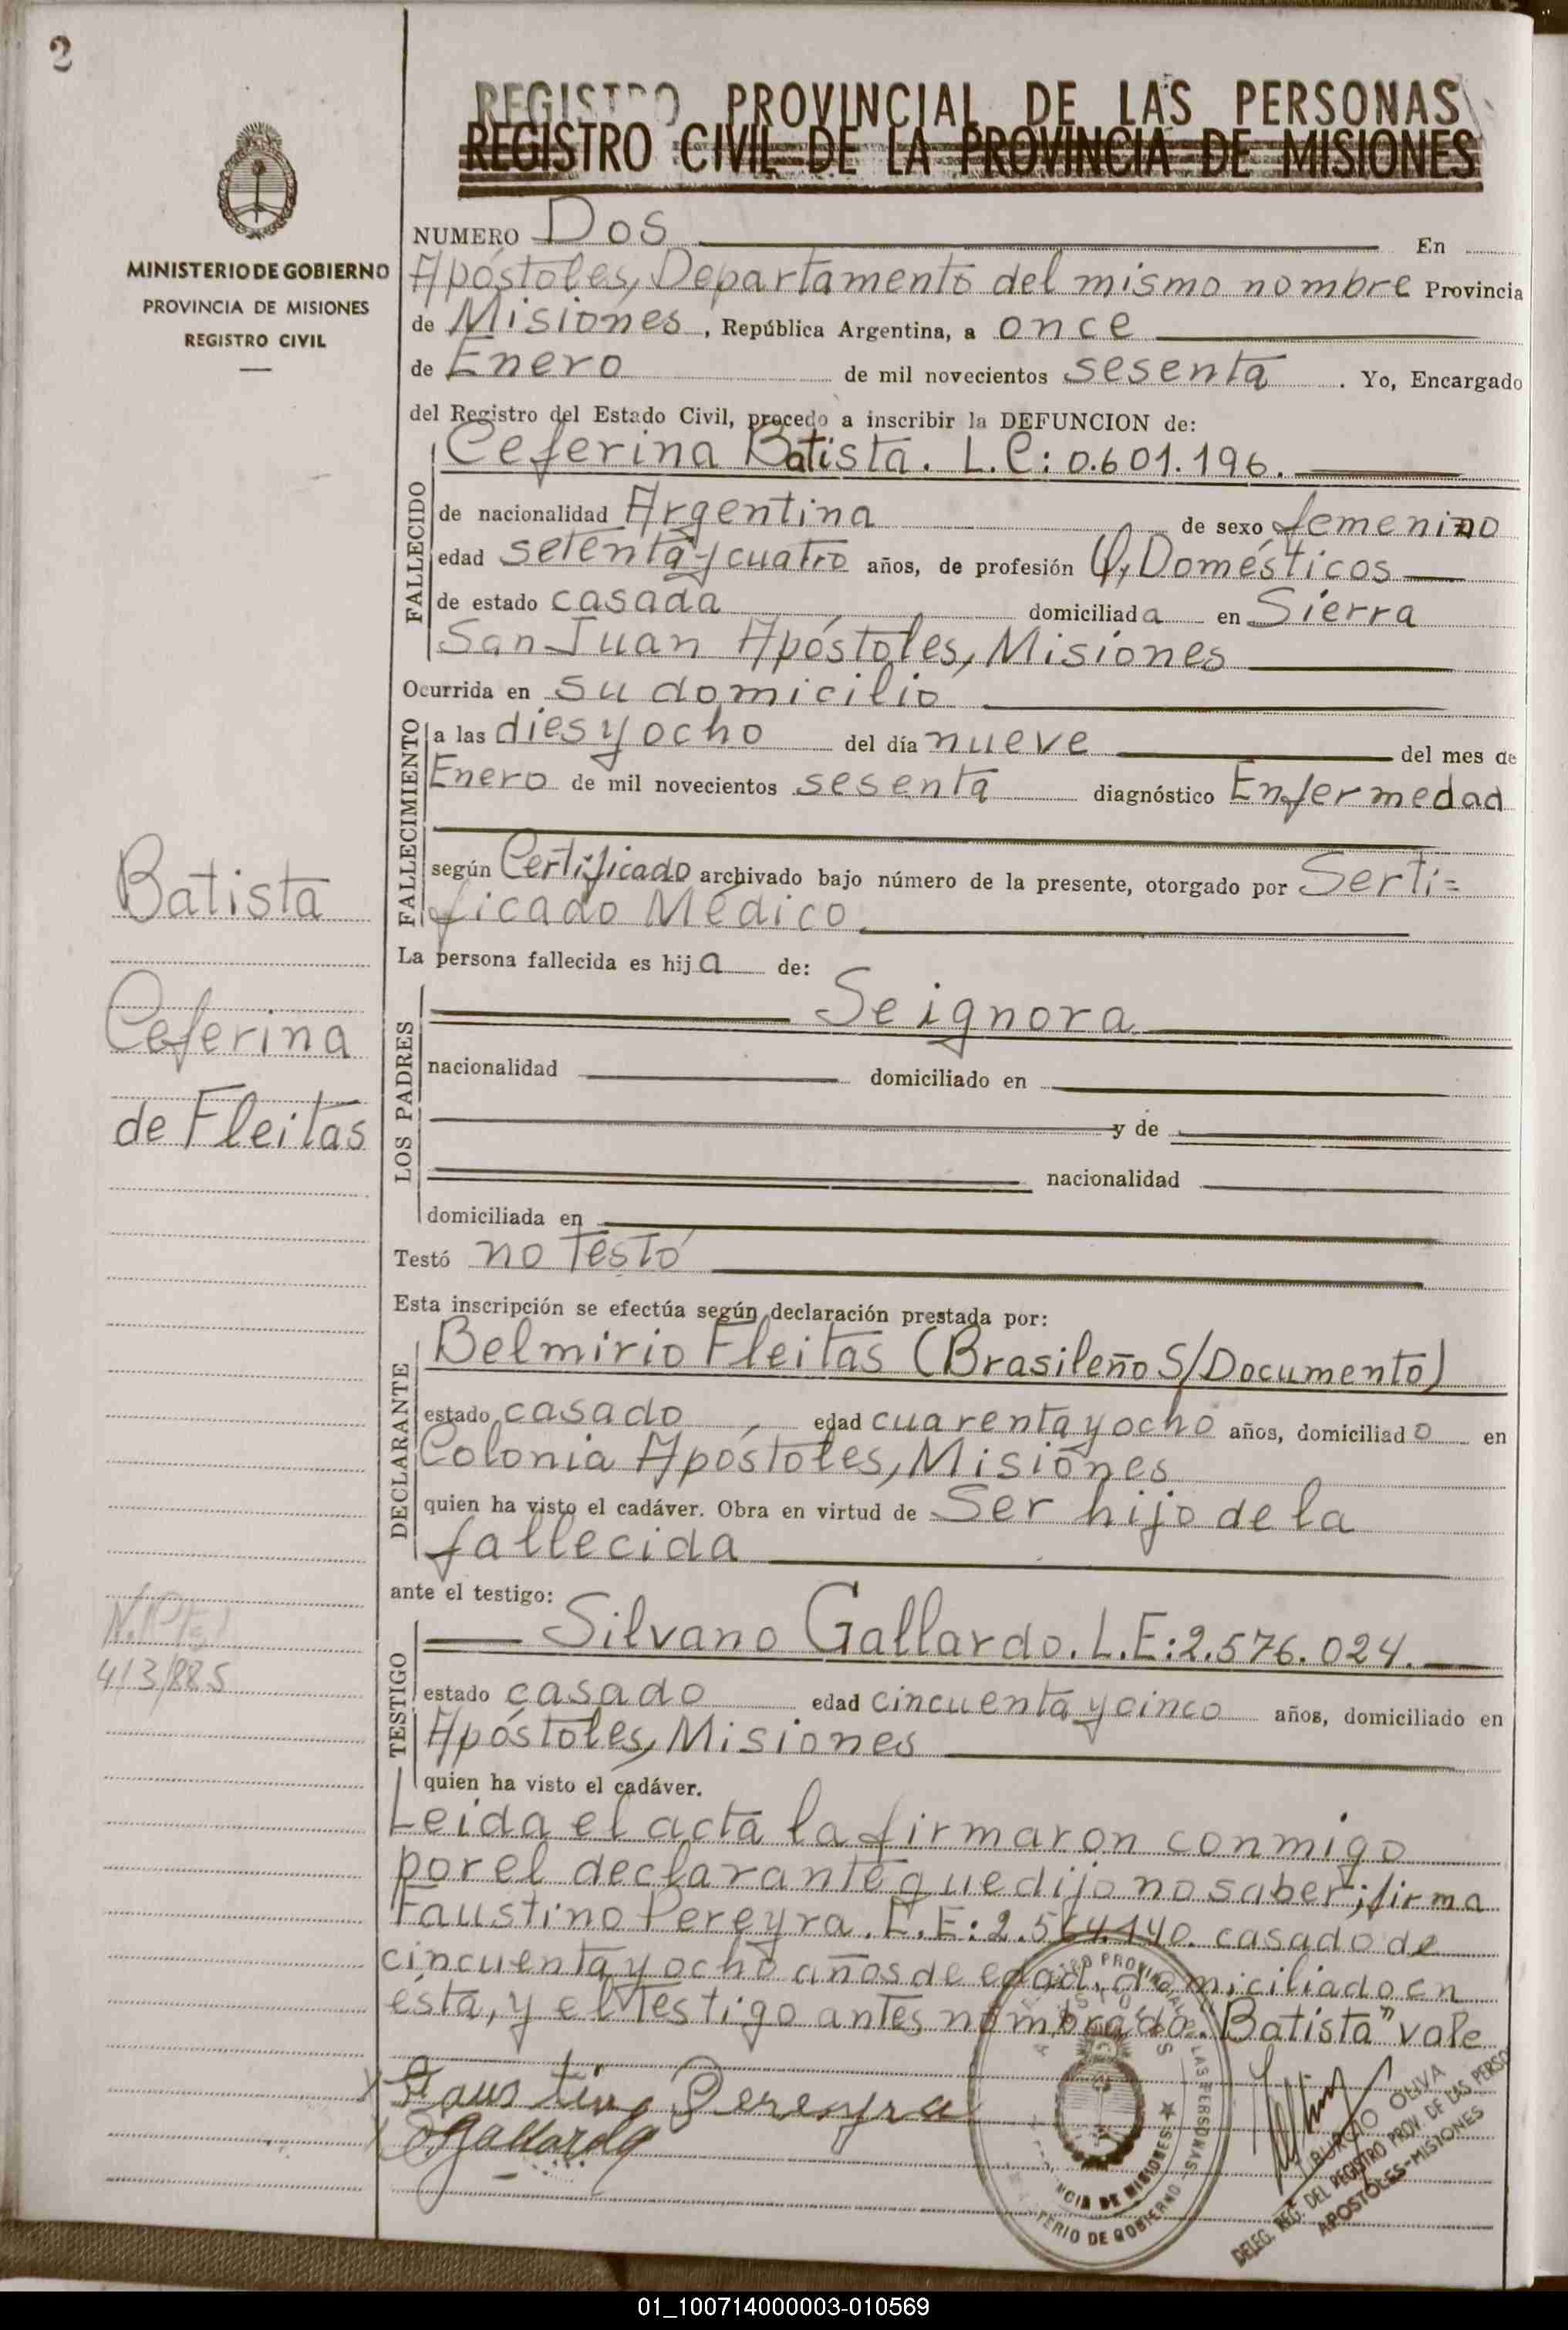 2
REGISTRO PROVINCIAL DE LAS PERSONAS
REGISTRO CIVIL DE LA PROVINCIA DE MISIONES
MINISTERIO DE GOBIERNO
PROVINCIA DE MISIONES
REGISTRO CIVIL
NUMERO Dos En
Apóstoles, Departamento del mismo nombre Provincia
de Misiones, República Argentina, a once
de Enero de mil novecientos sesenta. Yo, Encargado
del Registro del Estado Civil, procedo a inscribir la DEFUNCION de:
FALLECIDO
Ceferina Batista. L.C: 0.601.196.
de nacionalidad Argentina de sexo femenino
edad setenta y cuatro años, de profesión Q, Domésticos
de estado casada domiciliada en Sierra
San Juan Apóstoles, Misiones
Ocurrida en su domicilio
FALLECIMIENTO
a las dies y ocho del día nueve del mes de
Enero de mil novecientos sesenta diagnóstico Enfermedad
según Certificado archivado bajo número de la presente, otorgado por Serti=
ficado Médico
Batista
Ceferina
de Fleitas
La persona fallecida es hija de:
LOS PADRES
Se ignora
nacionalidad domiciliado en
y de
nacionalidad
domiciliada en
Testó no testó
Esta inscripción se efectúa según declaración prestada por:
DECLARANTE
Belmirio Fleitas (Brasileño S/Documento)
estado casado, edad cuarenta y ocho años, domiciliado en
Colonia Apóstoles, Misiones
quien ha visto el cadáver. Obra en virtud de Ser hijo de la
fallecida
ante el testigo:
TESTIGO
Silvano Gallardo. L.E: 2.576.024.
estado casado edad cincuenta y cinco años, domiciliado en
Apóstoles, Misiones
quien ha visto el cadáver.
413/885
Leida el acta la firmaron conmigo
por el declarante que dijo no saber; firma
Faustino Pereyra. L.E: 2.564.140. casado de
cincuenta y ocho años de edad, domiciliado en
ésta, y el testigo antes nombrado. Batista" vale
Faustino Pereyra
S Gallardo
MINISTERIO DE GOBIERNO
PROVINCIAL DE LAS PERSONAS
PROVINCIA DE MISIONES
BURCIO OLIVA
DELEG. REG. DEL REGISTRO PROV. DE LAS PERSO
APOSTOLES-MISIONES
01_100714000003-010569